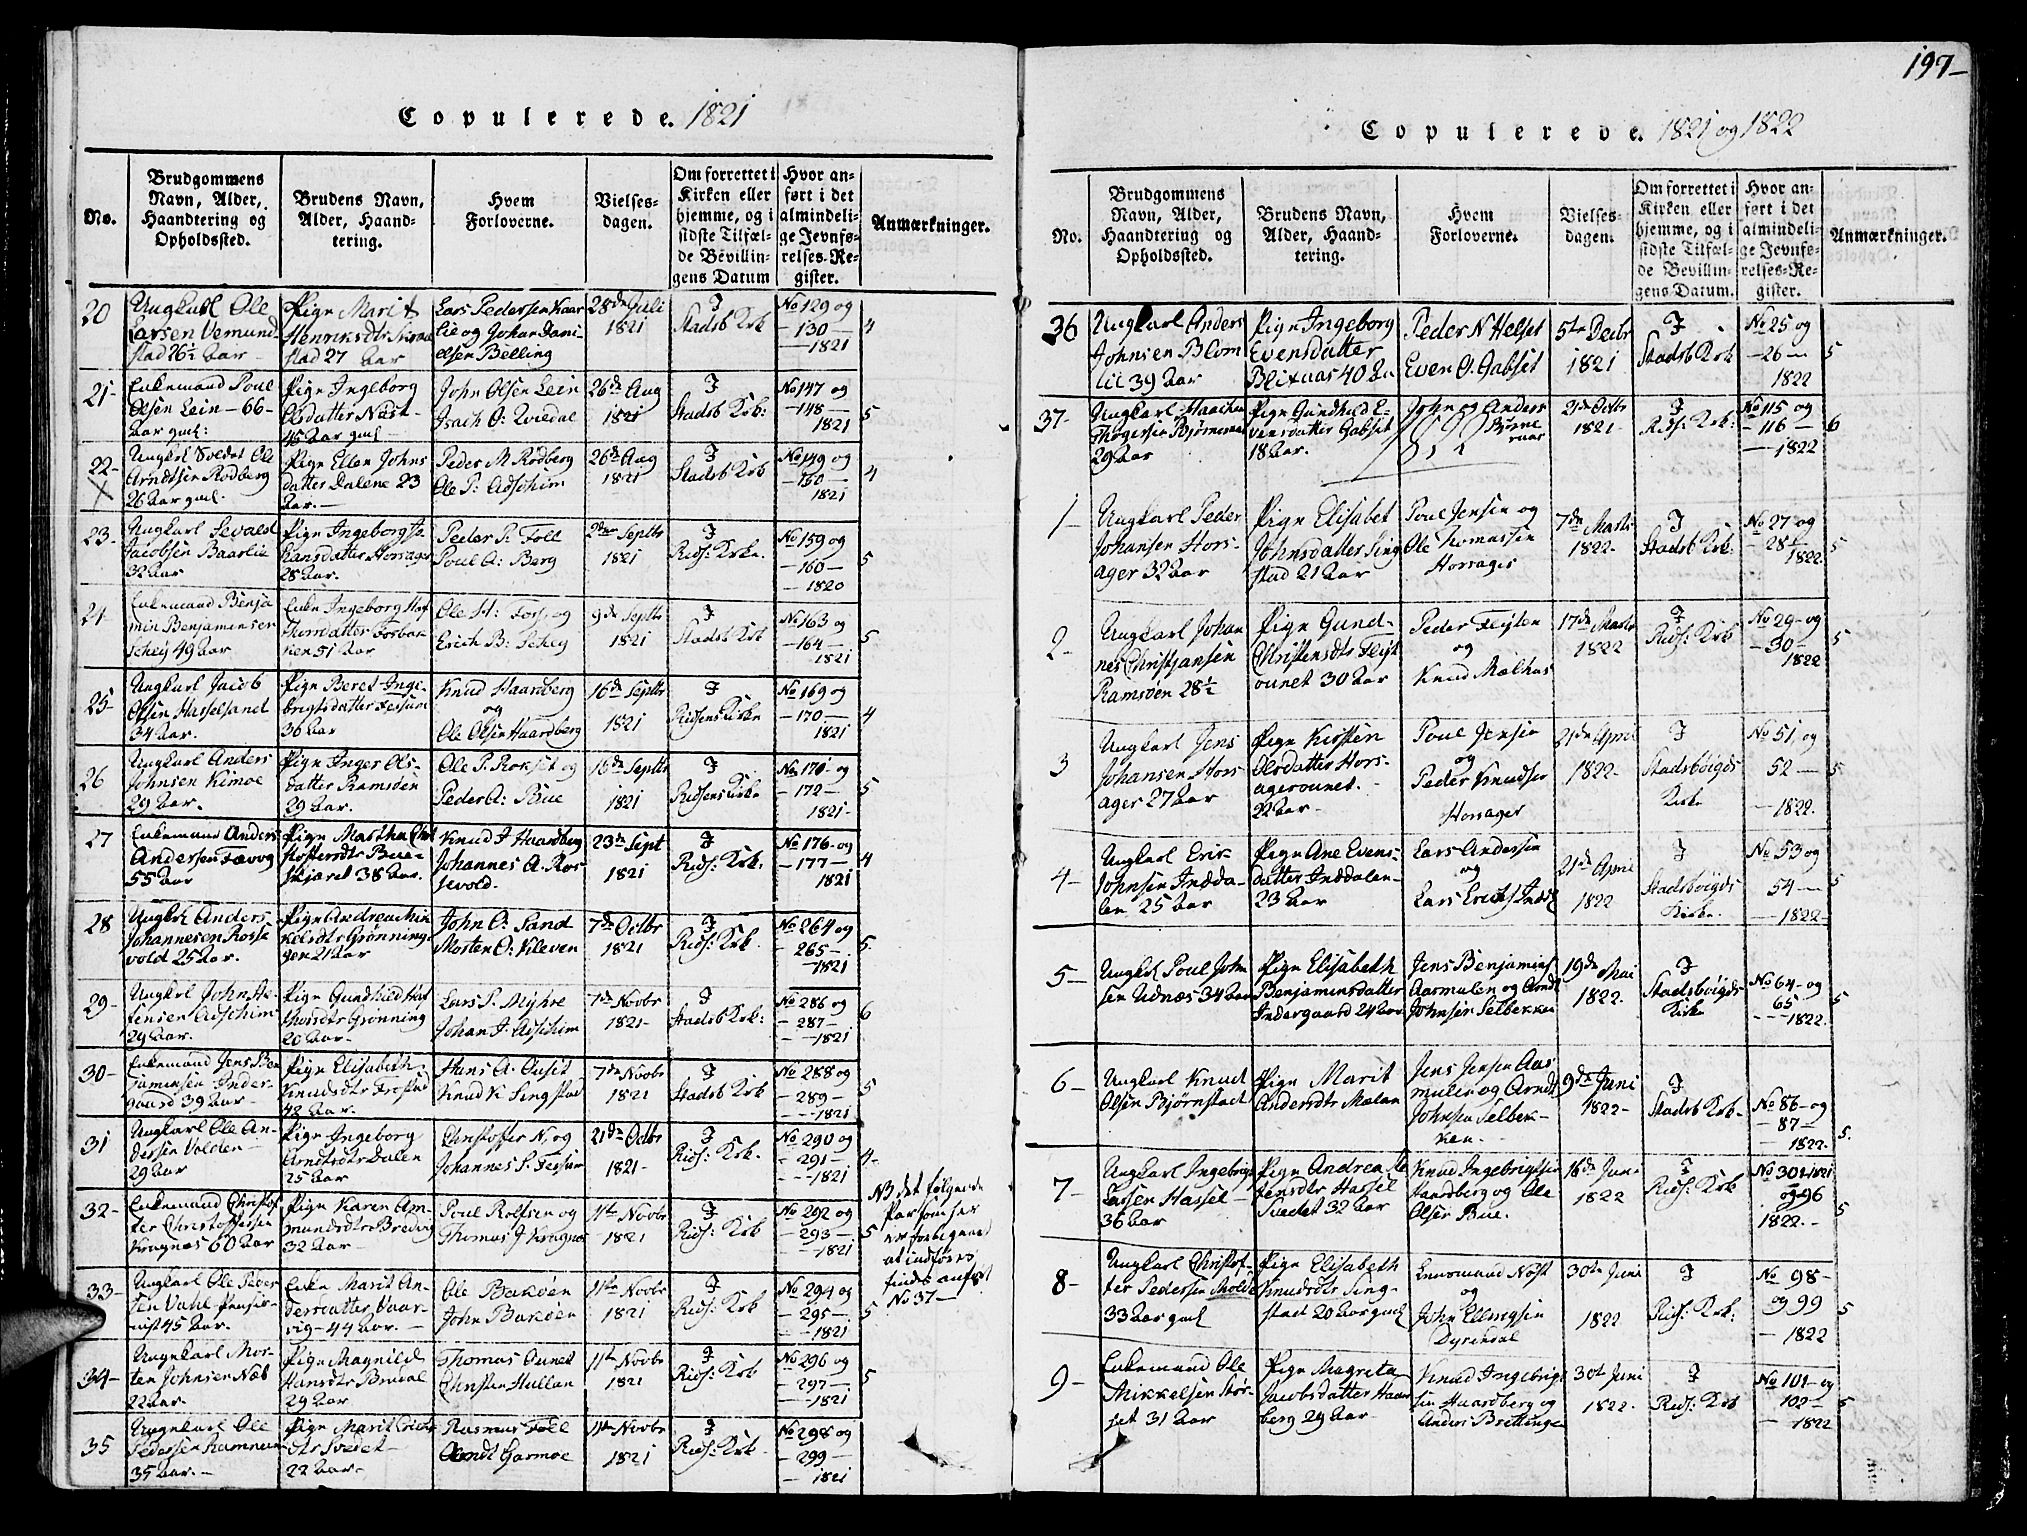 197-
Copulerede. 1821
No.
Brudgommens Navn, Alder, Haandtering og Opholdssted.
Brudens Navn, Alder, Haandtering.
Hvem Forloverne.
Vielsesdagen.
Om forrettet i Kirken eller hjemme, og i sidste Tilfælde Bevillingens Datum
Hvor anført i det almindelige Jevnførelses-Register.
Anmærkninger.
20
Ungkarl Ole
Larsen Vemund
stad 26½ Aar
Pige Marit
Henriksdtr
stad 27 Aar
Lars Pedersen Kaar
lie og Johan Dani
elsen Belling
28de Juli
1821
I
Stadsb Krk
No 129 og
-130-
-1821
4
21-
Enkemand Poul
Olsen Lein - 66-
Aar gml:
Pige Ingeborg
Olsdatter Næst
45 Aar gml
John Olsen Lein
Isach O: Qvedal
26de Aug
1821
I
Stadsb Krk:
No 147 og
-148-
1821
5
22-
Ungkl Soldat Ole
Arndtsen Rodberg
26 Aar gml.
Pige Ellen Johns
datter Dalene 23
Aar.-
Peder M Rodberg
Ole P: Adschim
26de Aug
1821
I
Stadsb Krk
No 149 og
-150-
1821
4
23-
Ungkarl Sevald
Jacobsen Baarlie
32 Aar
Pige Ingeborg Jo
hansdatter Horsager
28 Aar.
Peder P. Foll
Poul A: Berg
2den Septbr
1821
I
Rids: Krke.
No 159 og
-160-
-1820
5
24
Enkemand Benja
min Benjaminsen
Schei 49 Aar
Enke Ingeborg Haf
thorsdatter Forbor
ken 51 Aar
Ole H: Fors og
Erich B: Schei
9de Septbr
1821
I
Stadsb Krk
No 163 og
-164-
1821
5
25-
Ungkarl Jacob
Olsen Hasselsand
34 Aar.
Pige Beret Inge-
brigtsdatter Fessum
36 Aar
Knud Haardberg
og
Ole Olsen Haardberg
16de Septbr
1821
I
Ridsens Kirke
No 169 og
-170-
1821
4
26
Ungkarl Anders
Johnsen Kimoe
29 Aar.
Pige Inger Ols-
datter Ramsøen
29 Aar.
Ole P. Rokset og
Peder A: Bue
16de Septbr
1821
I
Ridsens Kirke
No 171 og
-172-
1821-
5
27
Enkemand Anders
Andersen Fævog
55 Aar
Pige Martha Chri
stoffersdtr Bue-
skjæret 38 Aar.
Knud I Haardberg
Johannes A. Ros
sevold.
23de Sept
1821
I
Rids: Krk:
No 176 og
-177-
1821
4
28
Ungkl Anders
Johannesen Rosse
vold 25 Aar.
Pige Andrea Mik
kelsdtr Grønning
gen 21 Aar
John O: Sand
Morten O: Kleven
7de Octbr
1821
I
Ridsl: Krk.
No 264 og
-265-
-1821
5.
29-
Ungkarl John
Jensen Adschim
29 Aar.
Pige Gundhild Haf
thorsdtr Grønning
20 Aar.-
Lars P. Myhre
Johan J. Adschim
7de Novbr
1821-
I
Stadsb Krk:
No 286 og
-287-
-1821
6
30-
Enkemand Jens Ben
jaminsen Inder-
gaard 39 Aar-
Pige Elisabeth
Knudsdtr Frestad
42 Aar.
Hans A. Ouset
Knud K Singstad
7de Novbr
1821
I
Stadsb Krk
No 288 og
-289-
-1821
5
31
Ungkarl Ole An-
dersen Volden
29 Aar
Pige Ingeborg
Arndtsdtr Dalen
25 Aar
Christoffer N. og
Johannes S. Fessum
21de Octbr
1821-
I
Rids: Krk.
No 290 og
-291-
-1821
4-
32-
Enkemand Christof
fer Christoffersen
Kragnæs 60 Aar
Pige Karen Am-
mundsdtr Breding
32 Aar-
Poul Rolfsen og
Thomas J Kragnæs
11te Novbr
1821
I
Rids: Krk:
No 292 og
-293-
-1821
5
NB det følgende
Par som her
er forbigaaet
at indføres
findes anført
No 37-
33-
Ungkarl Ole Peder
sen Vahl Pensio-
nist 45 Aar.
Enke Marit An-
dersdatter Vaar-
vig - 44 Aar.-
Ole Bakøen
John Bakøen
11te Novbr
1821
I
Rids: Krk.
No 294 og
-295-
-1821
5
34-
Ungkarl Mor-
ten Johnsen Næs
22 Aar.
Pige Magnild
Hansdtr Bredal
29 Aar
Thomas Ounet
Christen Hullan
11te Novbr
1821
I
Rids: Krk.
No 296 og
-297-
-1821
5
35
Ungkarl Ole
Pedersen
35 Aar.-
Pige Marit
dtr Svedet-
22 Aar-
Rasmus Foll
Arndt Garmoe
11te Novbr
1821
I
Rids: Krk.
No 298 og
-299-
-1821
Copulerede. 1821 og 1822
No.
Brudgommens Navn, Alder, Haandtering og Opholdssted.
Brudens Navn, Alder, Haandtering.
Hvem Forloverne.
Vielsesdagen.
Om forrettet i Kirken eller hjemme, og i sidste Tilfælde Bevillingens Datum.
Hvor anført i det almindelige Jevnførelses-Register.
Anmærkninger.
36
Ungkarl Anders
Johnsen Blom
lie 39 Aar
Pige Ingeborg
Evensdatter
Blixaas 40 Aar
Peder N Helset
Even O. Gabset
5te Decbr
1821
I
Stadsb Krk
No 25 og
-26-
1822
5
37-
Ungkarl Haachen
Thogersen Bjørneraa
29 Aar
Pige Gundhild E-
vensdatter Gabset
18 Aar.
John og Anders
Bjørne
raas
21de Octbr
1821
I
Rids: Krk:
No 115 og
-116-
-1822
6
1-
Ungkarl Peder
Johansen Hors-
ager 32 Aar
Pige Elisabet
Johnsdatter Sing
stad 21 Aar
Poul Jensen og
Ole Thomassen
Horsager
7de Marts
1822.
I
Stadsb Krk:
No 27 og
-28-
1822.
5
2-
Ungkarl Johan
nes Christjansen
Ramsøen 28½
Pige Gund-
Christensdtr Flyt
ounet 30 Aar
Peder Flyten
og
Knud Mælhus
17de Marts
1822
I
Rids: Krk
No 29- og
-30-
1822
5
3
Ungkarl Jens
Johansen Hors-
ager 27 Aar
Pige Kirsten
Olsdatter Hors-
agerounet.-
22 Aar-
Poul Jensen
og
Peder Knudsen
Horsager
21de April
1822-
I
Stadsbøigds
Kirke
No 51 og
52-
-1822.
5
4-
Ungkarl Eric-
Johnsen Indda-
len 25 Aar
Pige Ane Evens-
datter Inddalen-
23 Aar
Lars Andersen
og
Lars Erichs Indd
21de April
1822
I
Stadsbøigds
Kirke.
No 53 og
54-
-1822-
5
5-
Ungkl Poul John
sen Udnæs 34 Aar
Pige Elisabeth
Benjaminsdatter
Indergaard 24 Aar
Jens Benjamins
Aarmulen og Arndt
Johnsen Selbekken
19de Mai
1822.
I
Stadsbøigds
Kirke
No 64- og
65-
-1822.
5
6-
Ungkarl Knud
Olsen Bjørnstad
Pige Marit
Andersdtr Mælan
Jens Jensen Aas
mulen og Arndt
Johnsen Selbek-
ken-
9de Juni
1822-
I
Stadsb Krk-
No 86- og
-87-
1822.
5.
7-
Ungkarl Ingebrigt
Larsen Hassel-
36 Aar
Pige Andrea
Jensdtr Hassel
Svedet 32 Aar
Knud Ingebrigtsen
Haardberg og Ole
Olsen Bue.
16de Juni
1822
I
Ridsl: Krk
og 96
1822.-
5
8-
Ungkarl Christof-
fer Pedersen
33 Aar gml
Pige Elisabeth
Knudsdtr Sing-
stad 20 Aar gml
Lensmand Nøst
og
John Ellingsen
Dyrendal
30te Juni
1822
I
Rids: Krk:
No 98-
og 99
-1822
5
9-
Enkemand Ole
Mikkelsen Stør-
set 31 Aar
Pige Magreta
Jacobsdatter Haar
berg 29 Aar-
Knud Ingebrigt
sen Haardberg og
Anders Brettingen
30te Juni
1822.
I
Rids: Krk
No 101- og
102-
-1822
5